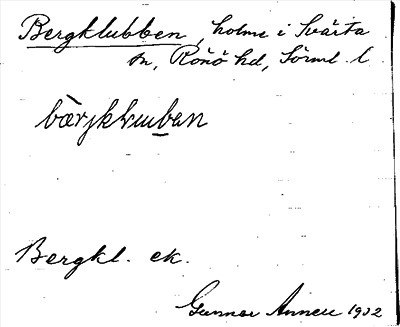 Bergklubben, holme i Svärta
sn, Rönö hd, Sörml. l.
Bergkl. ek.
Gunnar Annell 1932